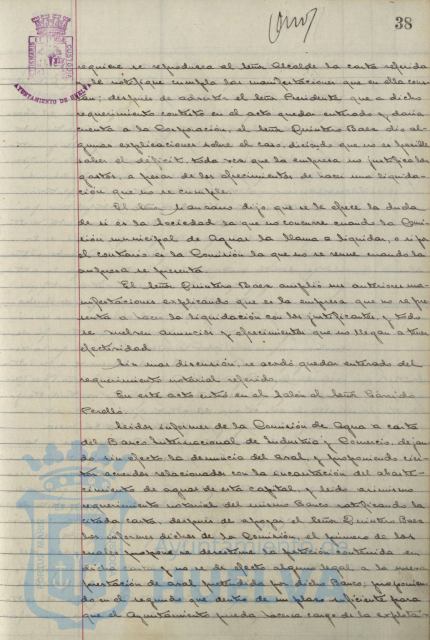 38
AYUNTAMIENTO DE HUELVA
requiere se reproduzca al Señor Alcalde la carta referida
y le notifique cumpla las manifestaciones que en ella cons
tan; después de advertir el Señor Presidente que a dicho
requerimiento contestó en el acto quedar enterado y daría
cuenta a la Corporación, el Señor Quintero Baez dió al-
gunas explicaciones sobre el caso, diciendo que no es posible
saber el déficit, toda vez que la empresa no justifica los
gastos, a pesar de los ofrecimientos de hacer una liquida-
ción que no se cumple.
El Señor dijo, que se le ofrece la duda
de si es la Sociedad la que no concurre cuando la Comi
sión municipal de Aguas la llama a liquidar, o si por
el contrario es la Comisión la que no se reune cuando la
empresa se presenta.
El Señor Quintero Baez amplió sus anteriores ma-
nifestaciones explicando que es la empresa que no se pre
senta a hacer la liquidación con los justificantes y todo
se vuelven anuncios y ofrecimientos que no llegan a tener
efectividad.
Sin mas discusión, se acordó quedar enterado del
requerimiento notarial referido.
En este acto entra en el Salón el Señor Garrido
Perelló.
Leidos informes de la Comisión de Agua a carta
del Banco Internacional de Industria y Comercio, dejan
do sin efecto la denuncia del aval, y proponiendo cier
tos acuerdos relacionados con la incautación del abaste-
cimiento de aguas de esta capital, y leido asimismo
requerimiento notarial del mismo Banco notificando la
citada carta, después de apoyar el Señor Quintero Baez
los informes dichos de la Comisión, el primero de los
cuales propone se desestime la petición contenida en
dicha carta y no se de efecto alguno legal a la nueva
prestación de aval pretendida por dicho Banco, proponien
do en el segundo que dentro de un plazo suficiente para
que el Ayuntamiento pueda hacerse cargo de la explota-